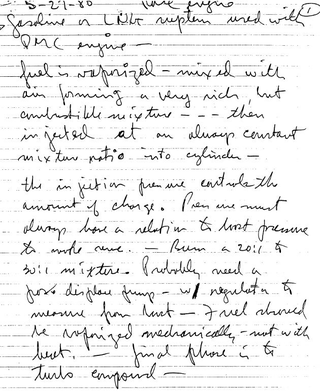 5-27-80 engine ①
Gasoline or LNG system used with
DMC engine —
fuel is vaporized - mixed with
air forming a very rich, but
combustible mixture --- then
injected at an always constant
mixture ratio into cylinder —
the injection pressure controls the
amount of charge. Pressure must
always have a relation to boost pressure
to work — Burn a 20:1 to
30:1 mixture. Probably need a
pos displace pump - w/ regulator to
measure from boost — Fuel should
be vaporized mechanically - not with
heat. — final phase is to
turbo compound —